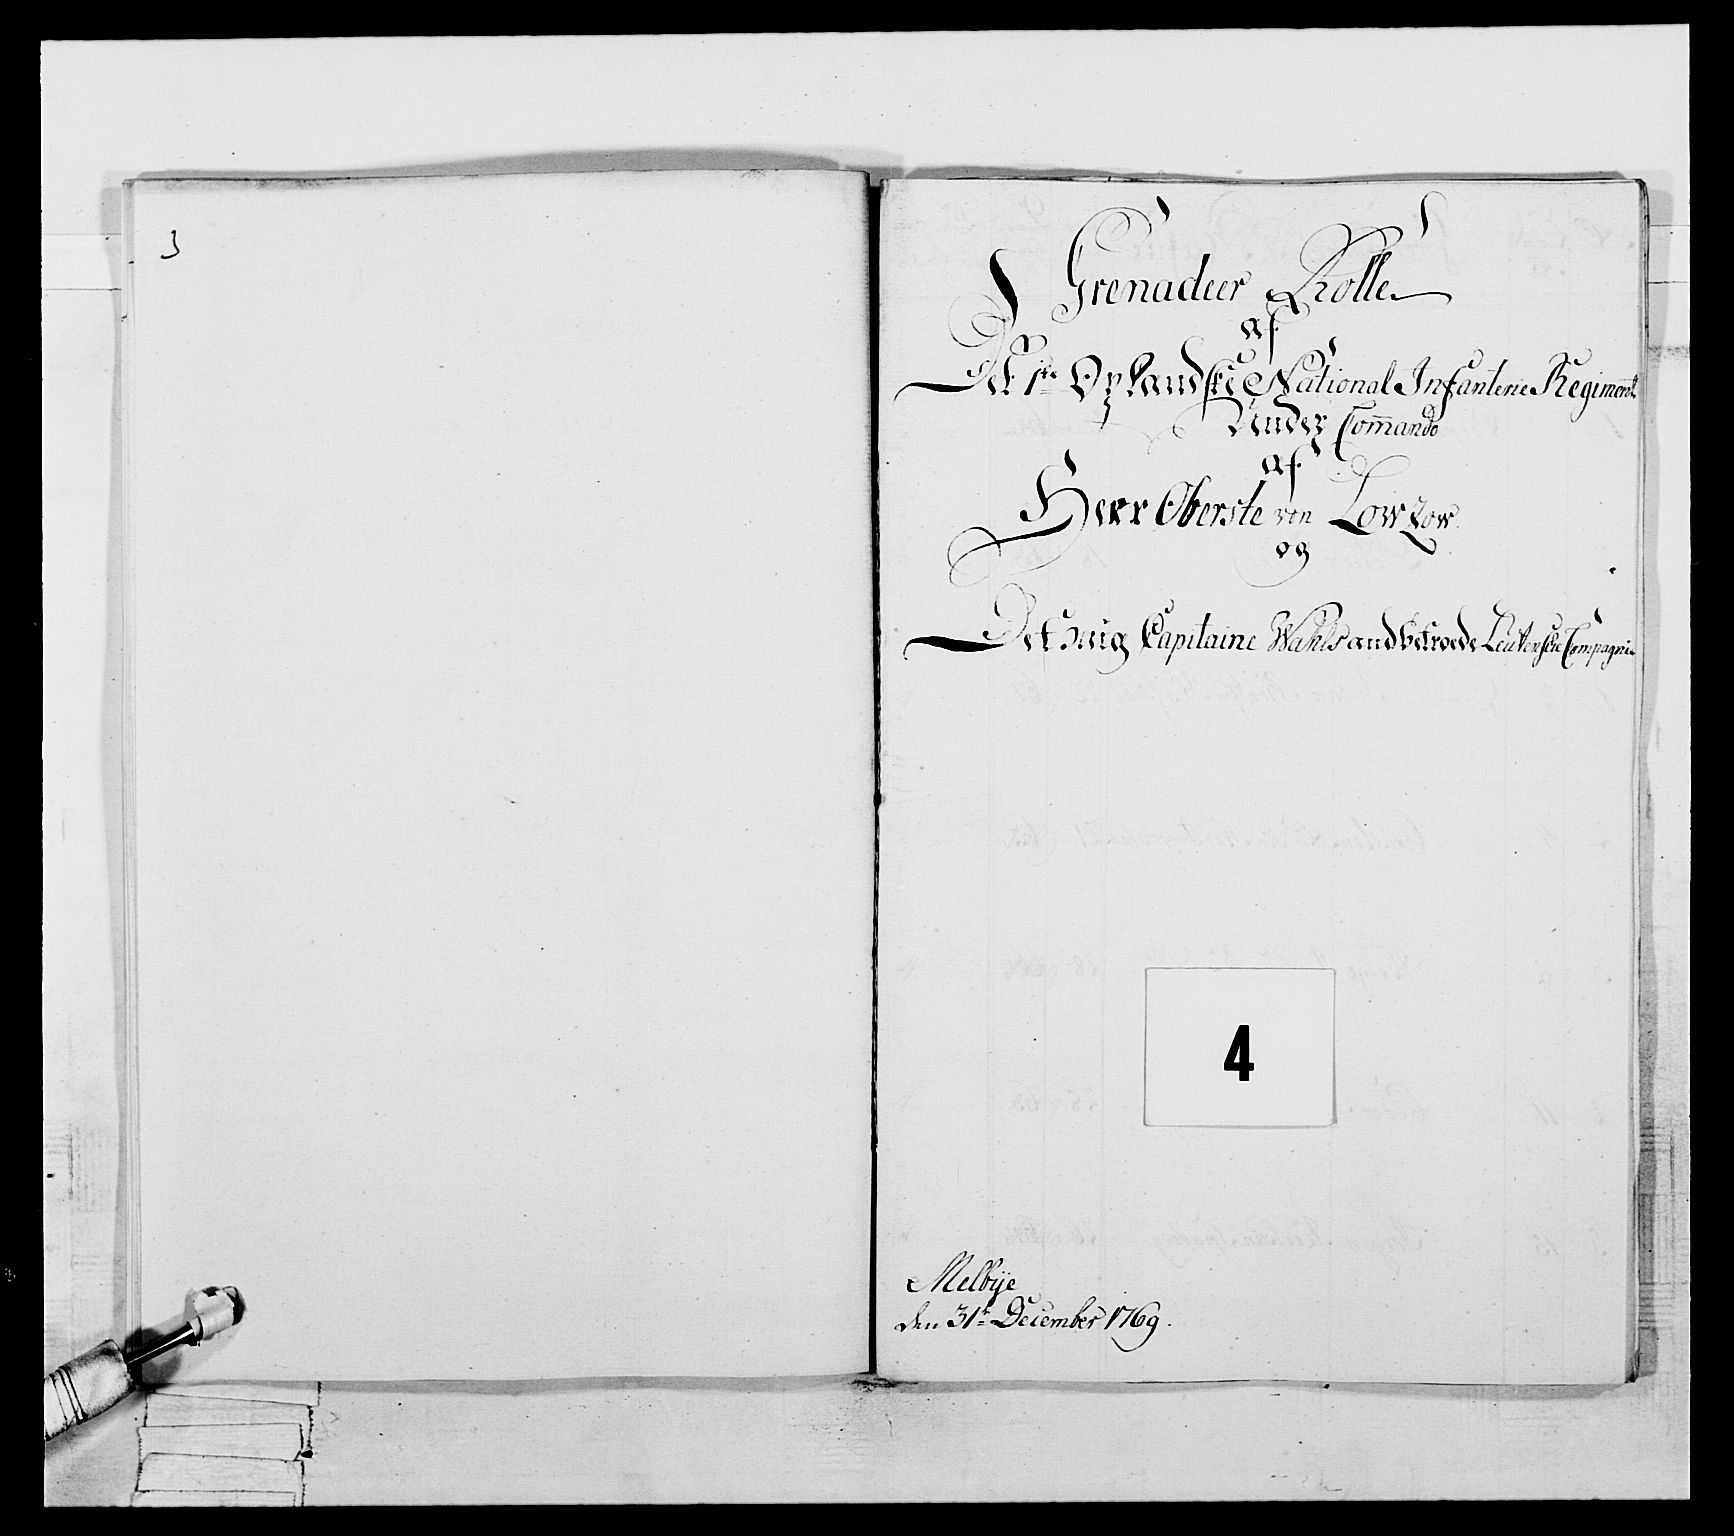 3
Grenadeer Rolle
af
Det 1te Oplandske National Infanterie Regiment
Under Com̄ando
af
Herr Oberste von Lowzow
og
Det mig Capitaine Wahls andbetroede Leutenske Compagnie
4
Melbye
den 31te December 1769.